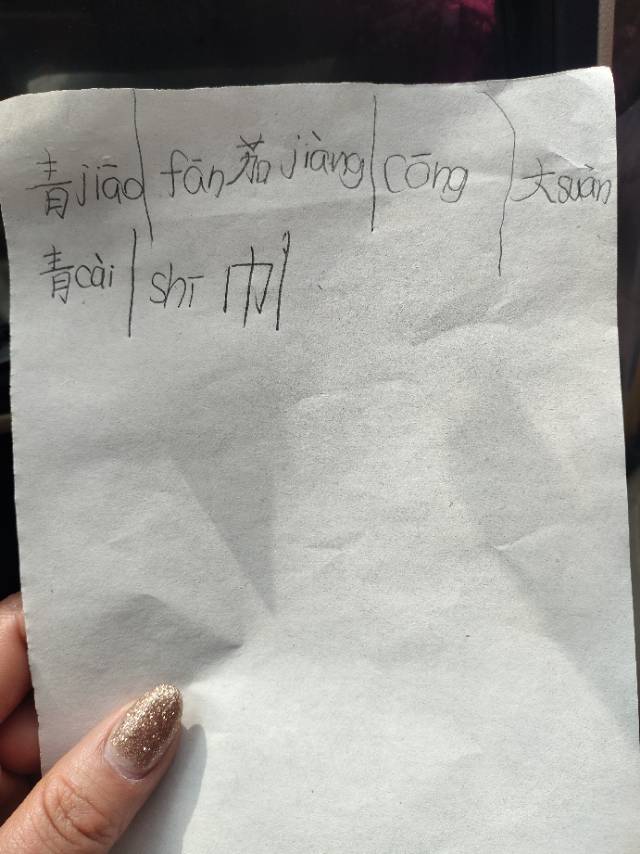 青jiāo|fān茄jiàng|cōng|大suàn
青cài|shī巾|